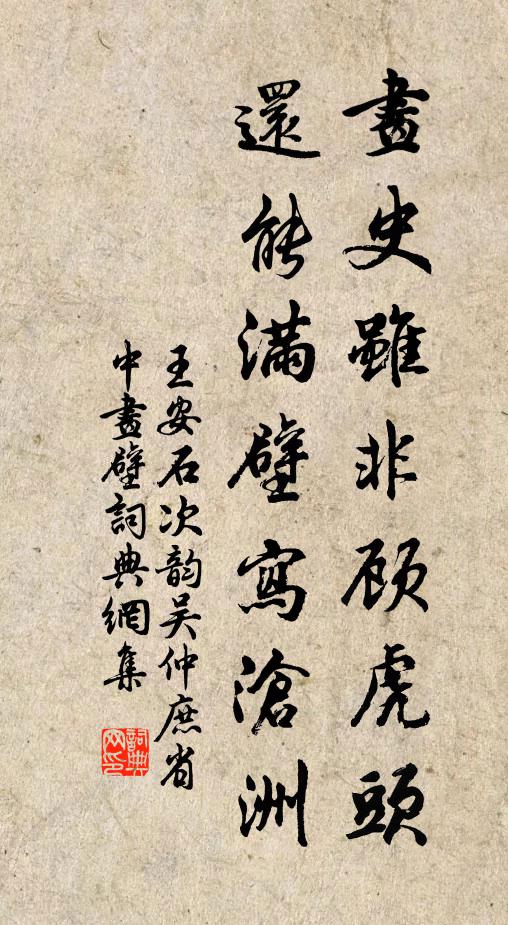 畫史雖非顧虎頭
還能滿壁寫滄洲
王安石次韵吴仲庶省
中畫壁詞典網集
詞典
网印